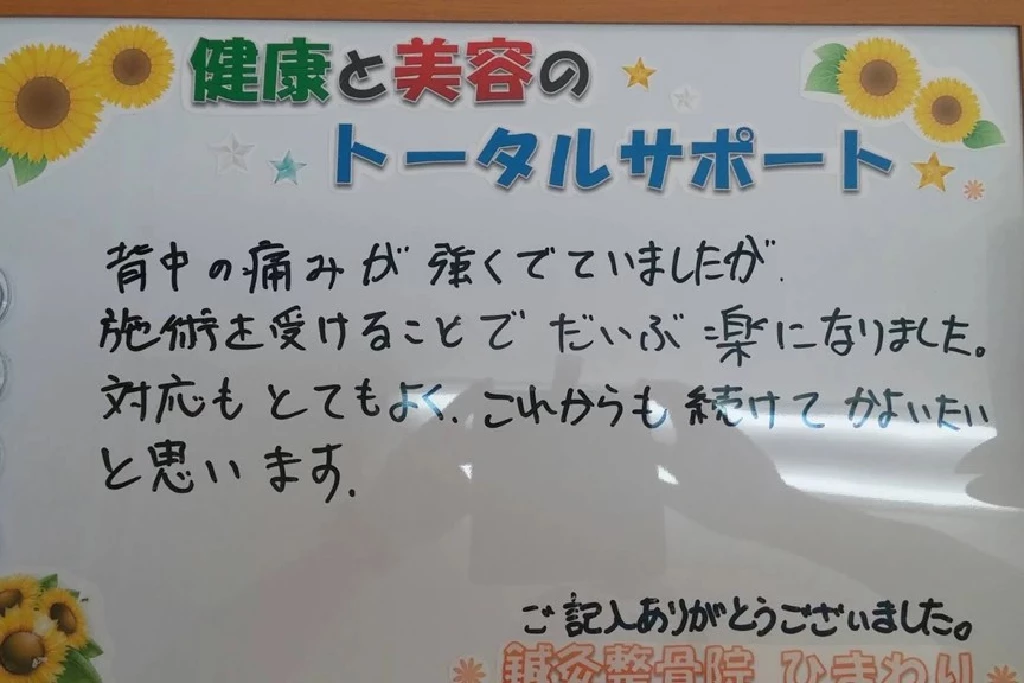 健康と美容の
トータルサポート
背中の痛みが強くでていましたが.
施術を受けることでだいぶ楽になりました。
対応もとてもよく.これからも続けてかよいたい
と思います.
ご記入ありがとうございました。
鍼灸整骨院 ひまわり